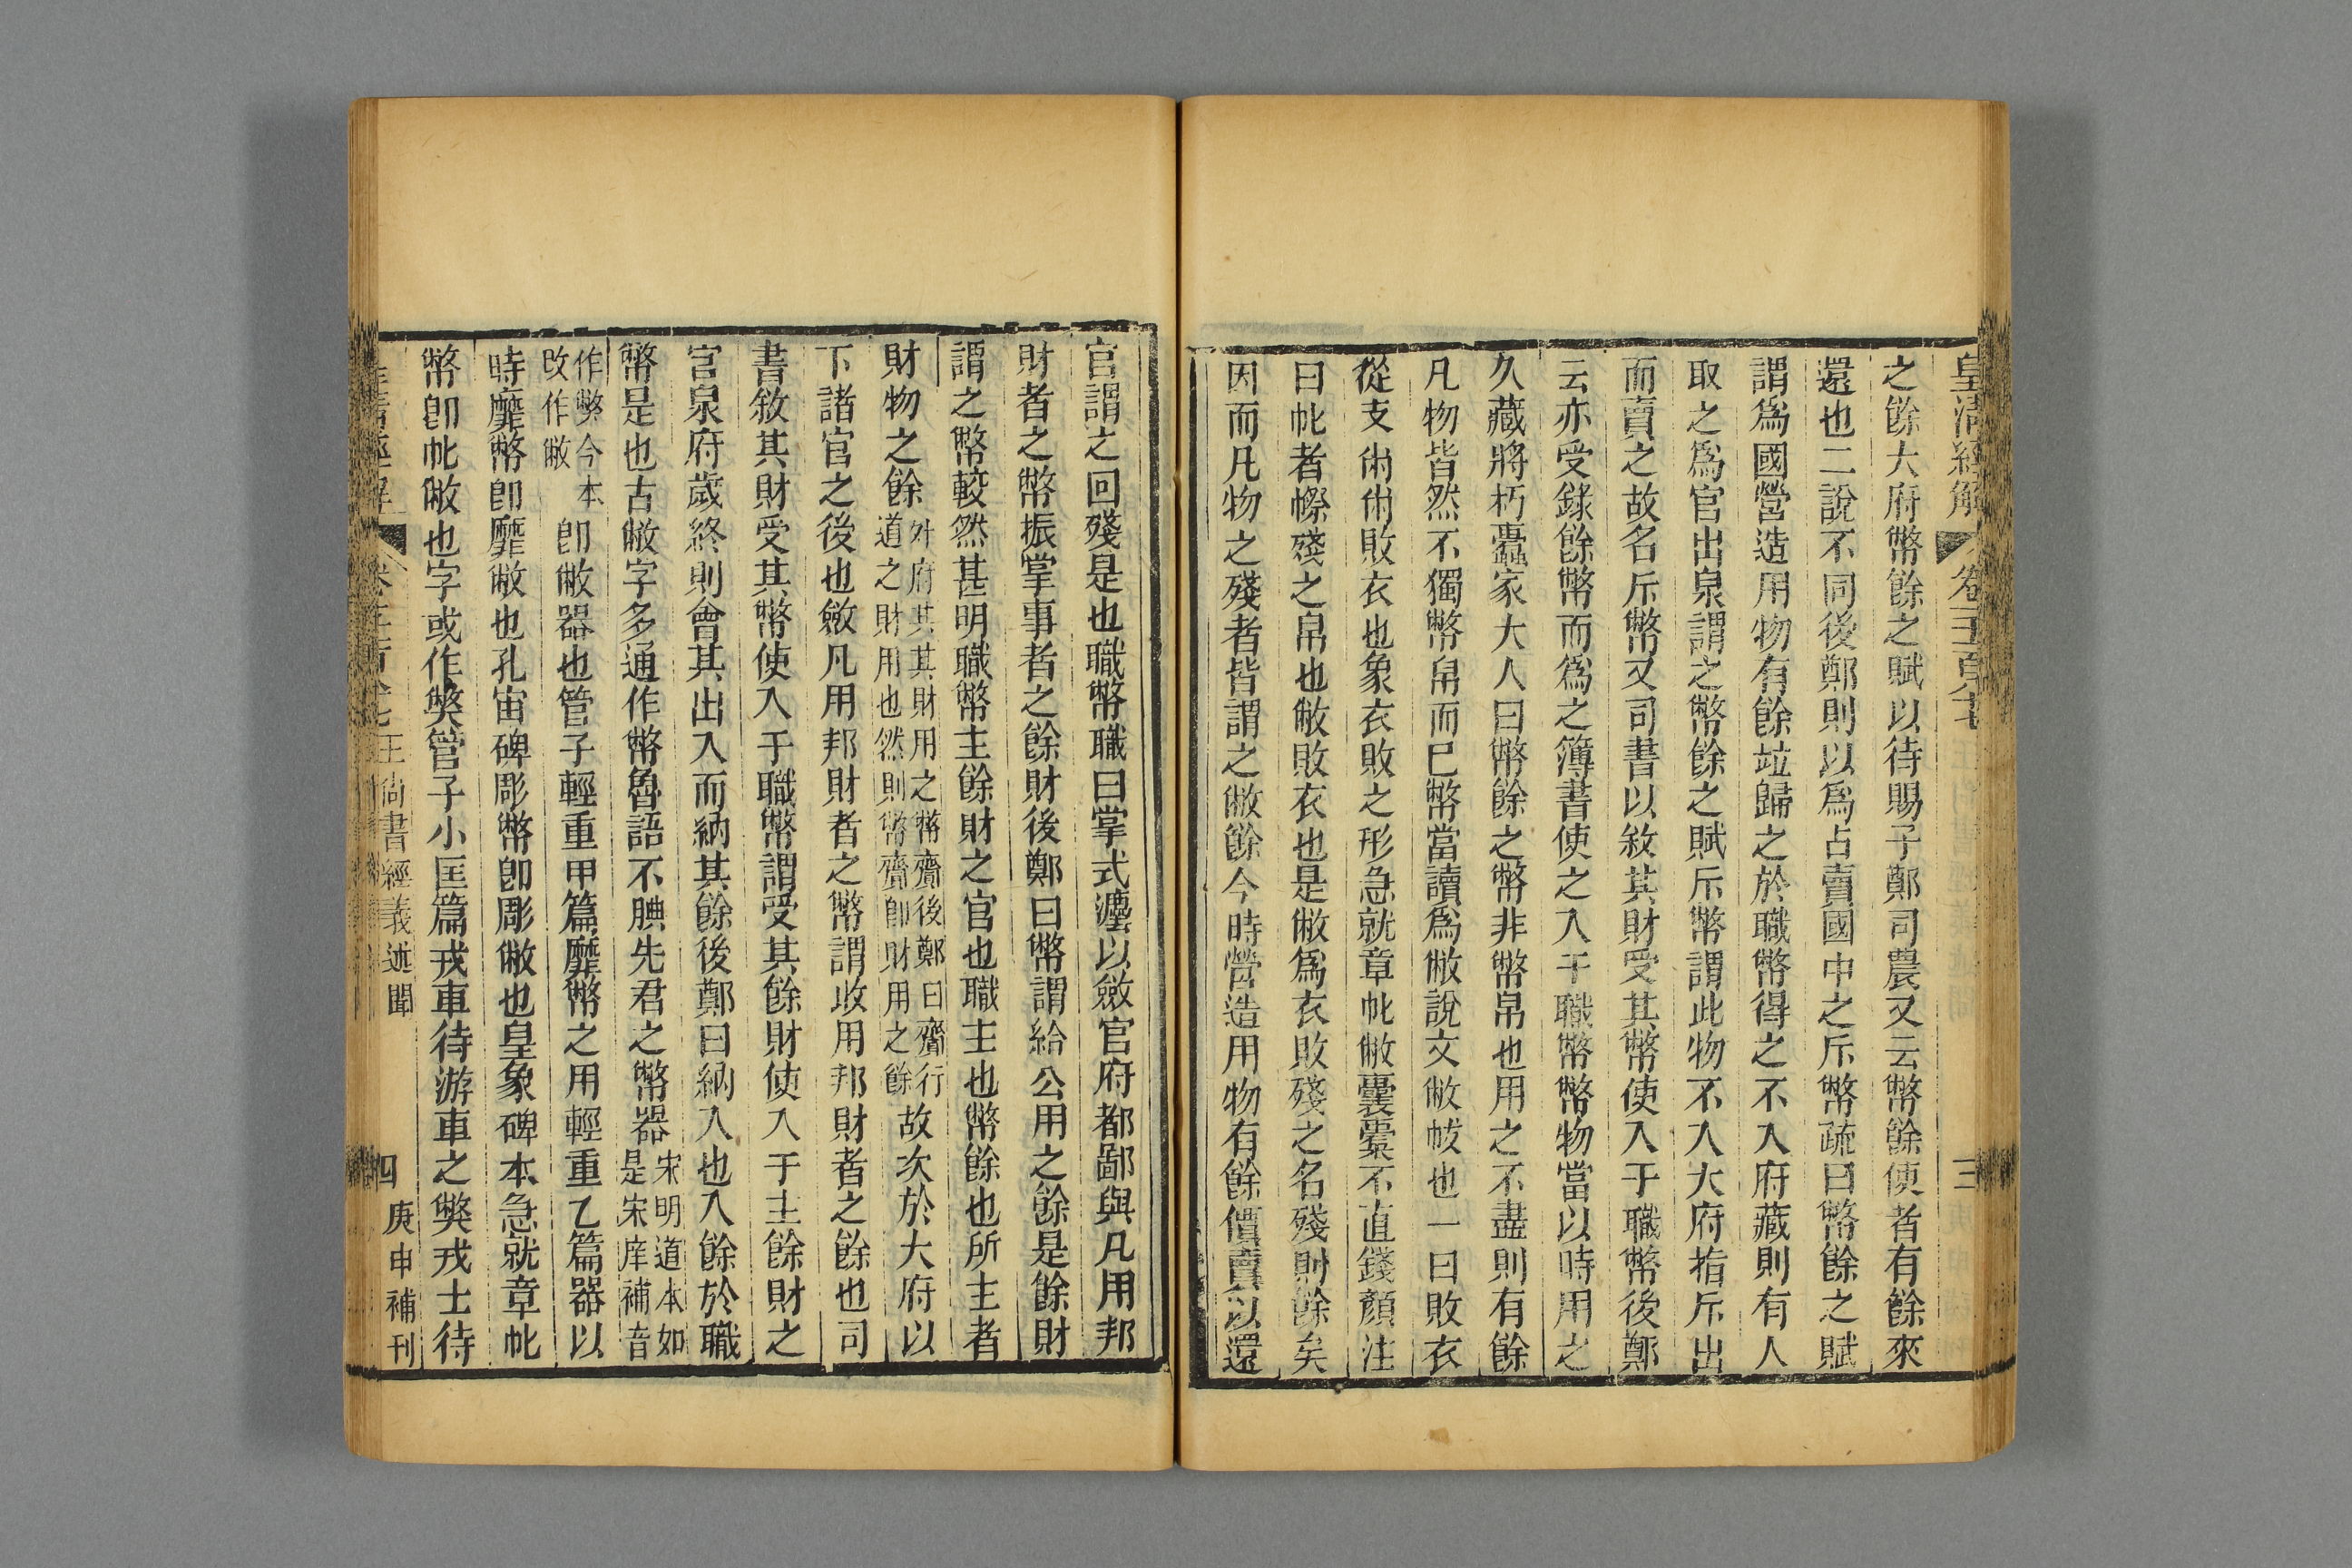 皇清經解 卷千一百八十七 三
之餘大府幣餘之賦以待賜予鄭司農又云幣餘使者有餘來
還也二說不同後鄭則以爲占賣國中之斥幣疏曰幣餘之賦
謂爲國營造用物有餘竝歸之於職幣得之不入府藏則有人
取之爲官出泉謂之幣餘之賦斥幣謂此物不入大府指斥出
而賣之故名斥幣又司書以敘其財受其幣使入于職幣後鄭
云亦受錄餘幣而爲之簿書使之入于職幣幣物當以時用之
久藏將朽蠹家大人曰幣餘之幣非幣帛也用之不盡則有餘
凡物皆然不獨幣帛而已幣當讀爲敝說文敝帗也一曰敗衣
從攴㡀㡀敗衣也象衣敗之形急就章帔敝囊橐不直錢顏注
曰帔者㡜殘之帛也敝敗衣也是敝爲衣敗殘之名殘則餘矣
因而凡物之殘者皆謂之敝餘今時營造用物有餘價賣以還
官謂之回殘是也職幣職曰掌式灋以斂官府都鄙與凡用邦
財者之幣振掌事者之餘財後鄭曰幣謂給公用之餘是餘財
謂之幣較然甚明職幣主餘財之官也職主也幣餘也所主者
財物之餘外府共其財用之幣齎後鄭曰齎行道之財用也然則幣齎卽財用之餘故次於大府以
下諸官之後也斂凡用邦財者之幣謂收用邦財者之餘也司
書敘其財受其幣使入于職幣謂受其餘財使入于主餘財之
官泉府歲終則會其出入而納其餘後鄭曰納入也入餘於職
幣是也古敝字多通作幣魯語不腆先君之幣器宋明道本如是宋庠補音
作弊今本改作敝卽敝器也管子輕重甲篇靡幣之用輕重乙篇器以
時靡幣卽靡敝也孔宙碑彫幣卽彫敝也皇象碑本急就章帔
幣卽帔敝也字或作獘管子小匡篇戎車待游車之獘戎士待
皇清經解 卷千一百八十七 王尙書經義述聞 四 庚申補刊